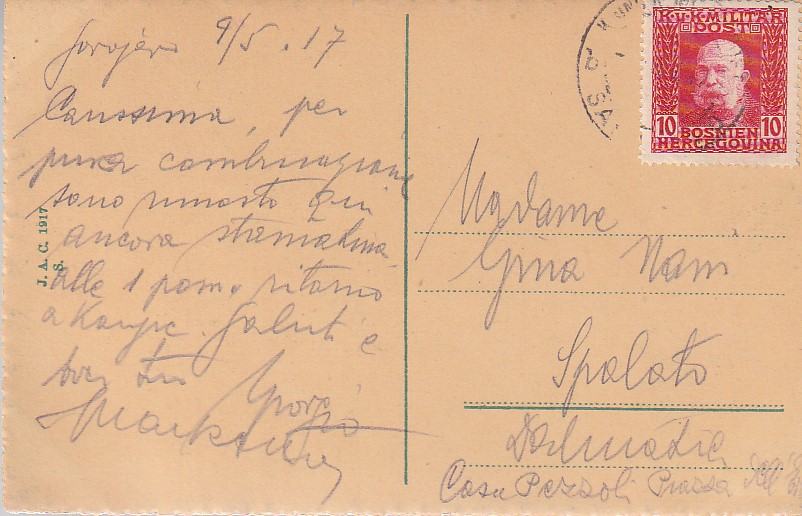 Sarajevo 9/5.17
Carissima, per
pura combinazione
sono rimasto qui
ancora stamattina
alle 1 pom. ritorno
a Saluti e
tuo Giorgio
J. A. C. 1917
S.
K.u.K. MILITÄR
POST
10 BOSNIEN 10
HERCEGOVINA
Madame
Gina Nani
Spalato
Dalmatia
Casa Pezzoli Piazza